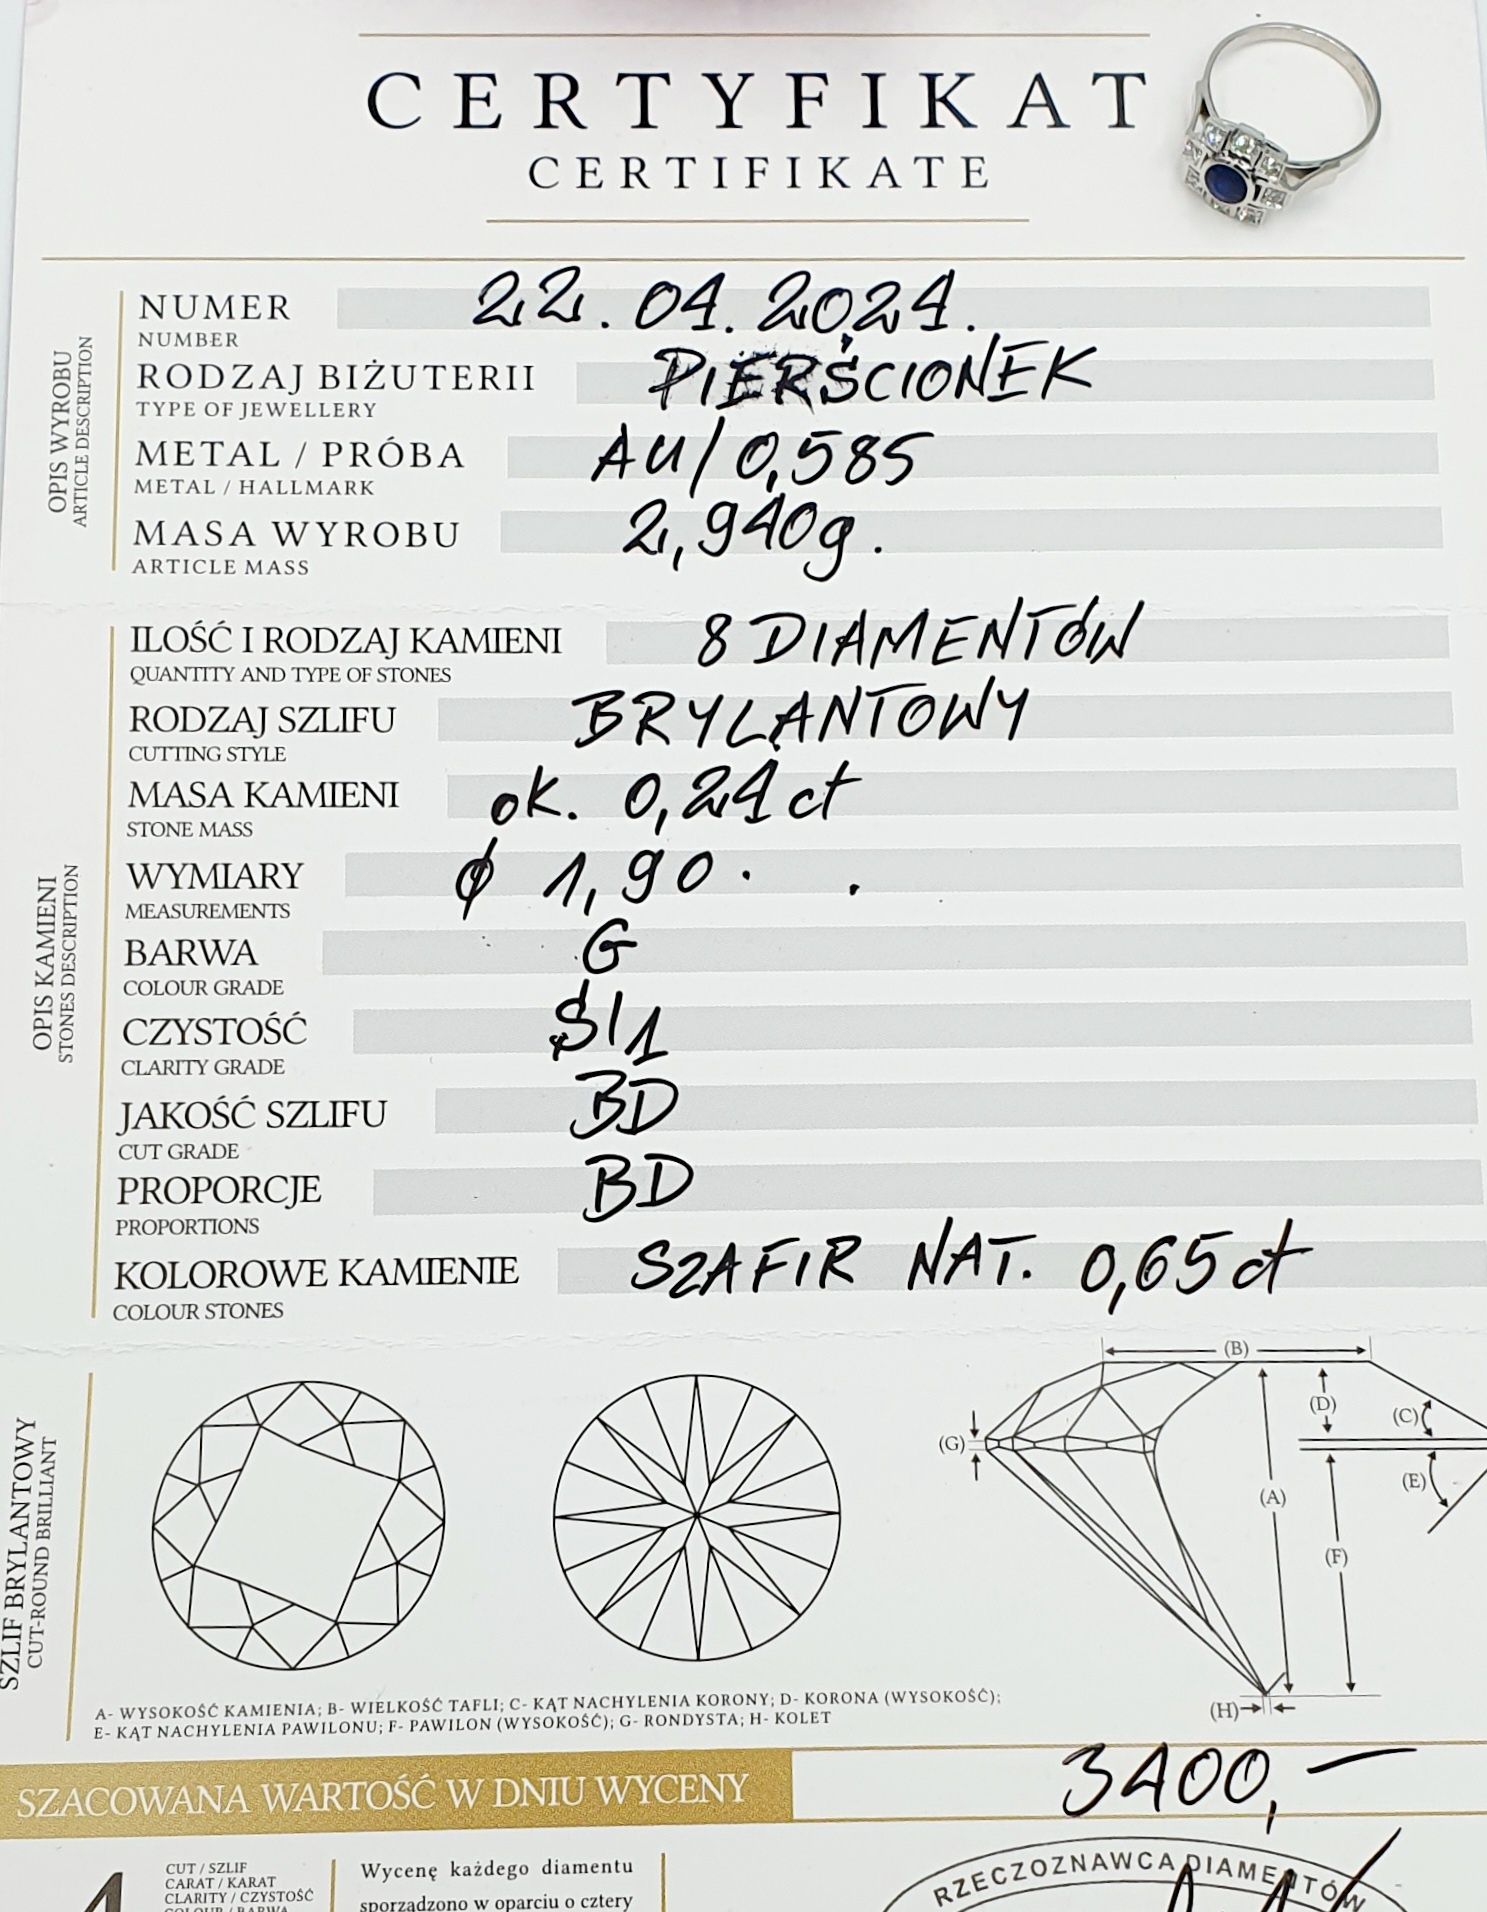 CERTYFIKAT
CERTIFIKATE
OPIS WYROBU
ARTICLE DESCRIPTION
NUMER 22.04.2024.
NUMBER
RODZAJ BIŻUTERII PIERŚCIONEK
TYPE OF JEWELLERY
METAL / PRÓBA AU/0,585
METAL / HALLMARK
MASA WYROBU 2,940g.
ARTICLE MASS
OPIS KAMIENI
STONES DESCRIPTION
ILOŚĆ I RODZAJ KAMIENI 8 DIAMENTÓW
QUANTITY AND TYPE OF STONES
RODZAJ SZLIFU BRYLANTOWY
CUTTING STYLE
MASA KAMIENI ok. 0,24 ct
STONE MASS
WYMIARY ϕ 1,90.
MEASUREMENTS
BARWA G
COLOUR GRADE
CZYSTOŚĆ SI1
CLARITY GRADE
JAKOŚĆ SZLIFU BD
CUT GRADE
PROPORCJE BD
PROPORTIONS
KOLOROWE KAMIENIE SZAFIR NAT. 0,65 ct
COLOUR STONES
SZLIF BRYLANTOWY
CUT-ROUND BRILLIANT
(B)
(D)
(C)
(G)
(E)
(A)
(F)
(H)
A- WYSOKOŚĆ KAMIENIA; B- WIELKOŚĆ TAFLI; C- KĄT NACHYLENIA KORONY; D- KORONA (WYSOKOŚĆ);
E- KĄT NACHYLENIA PAWILONU; F- PAWILON (WYSOKOŚĆ); G- RONDYSTA; H- KOLET
SZACOWANA WARTOŚĆ W DNIU WYCENY 3400,-
4
CUT / SZLIF
CARAT / KARAT
CLARITY / CZYSTOŚĆ
COLOUR / BARWA
Wycenę każdego diamentu
sporządzono w oparciu o cztery
RZECZOZNAWCA DIAMENTÓW